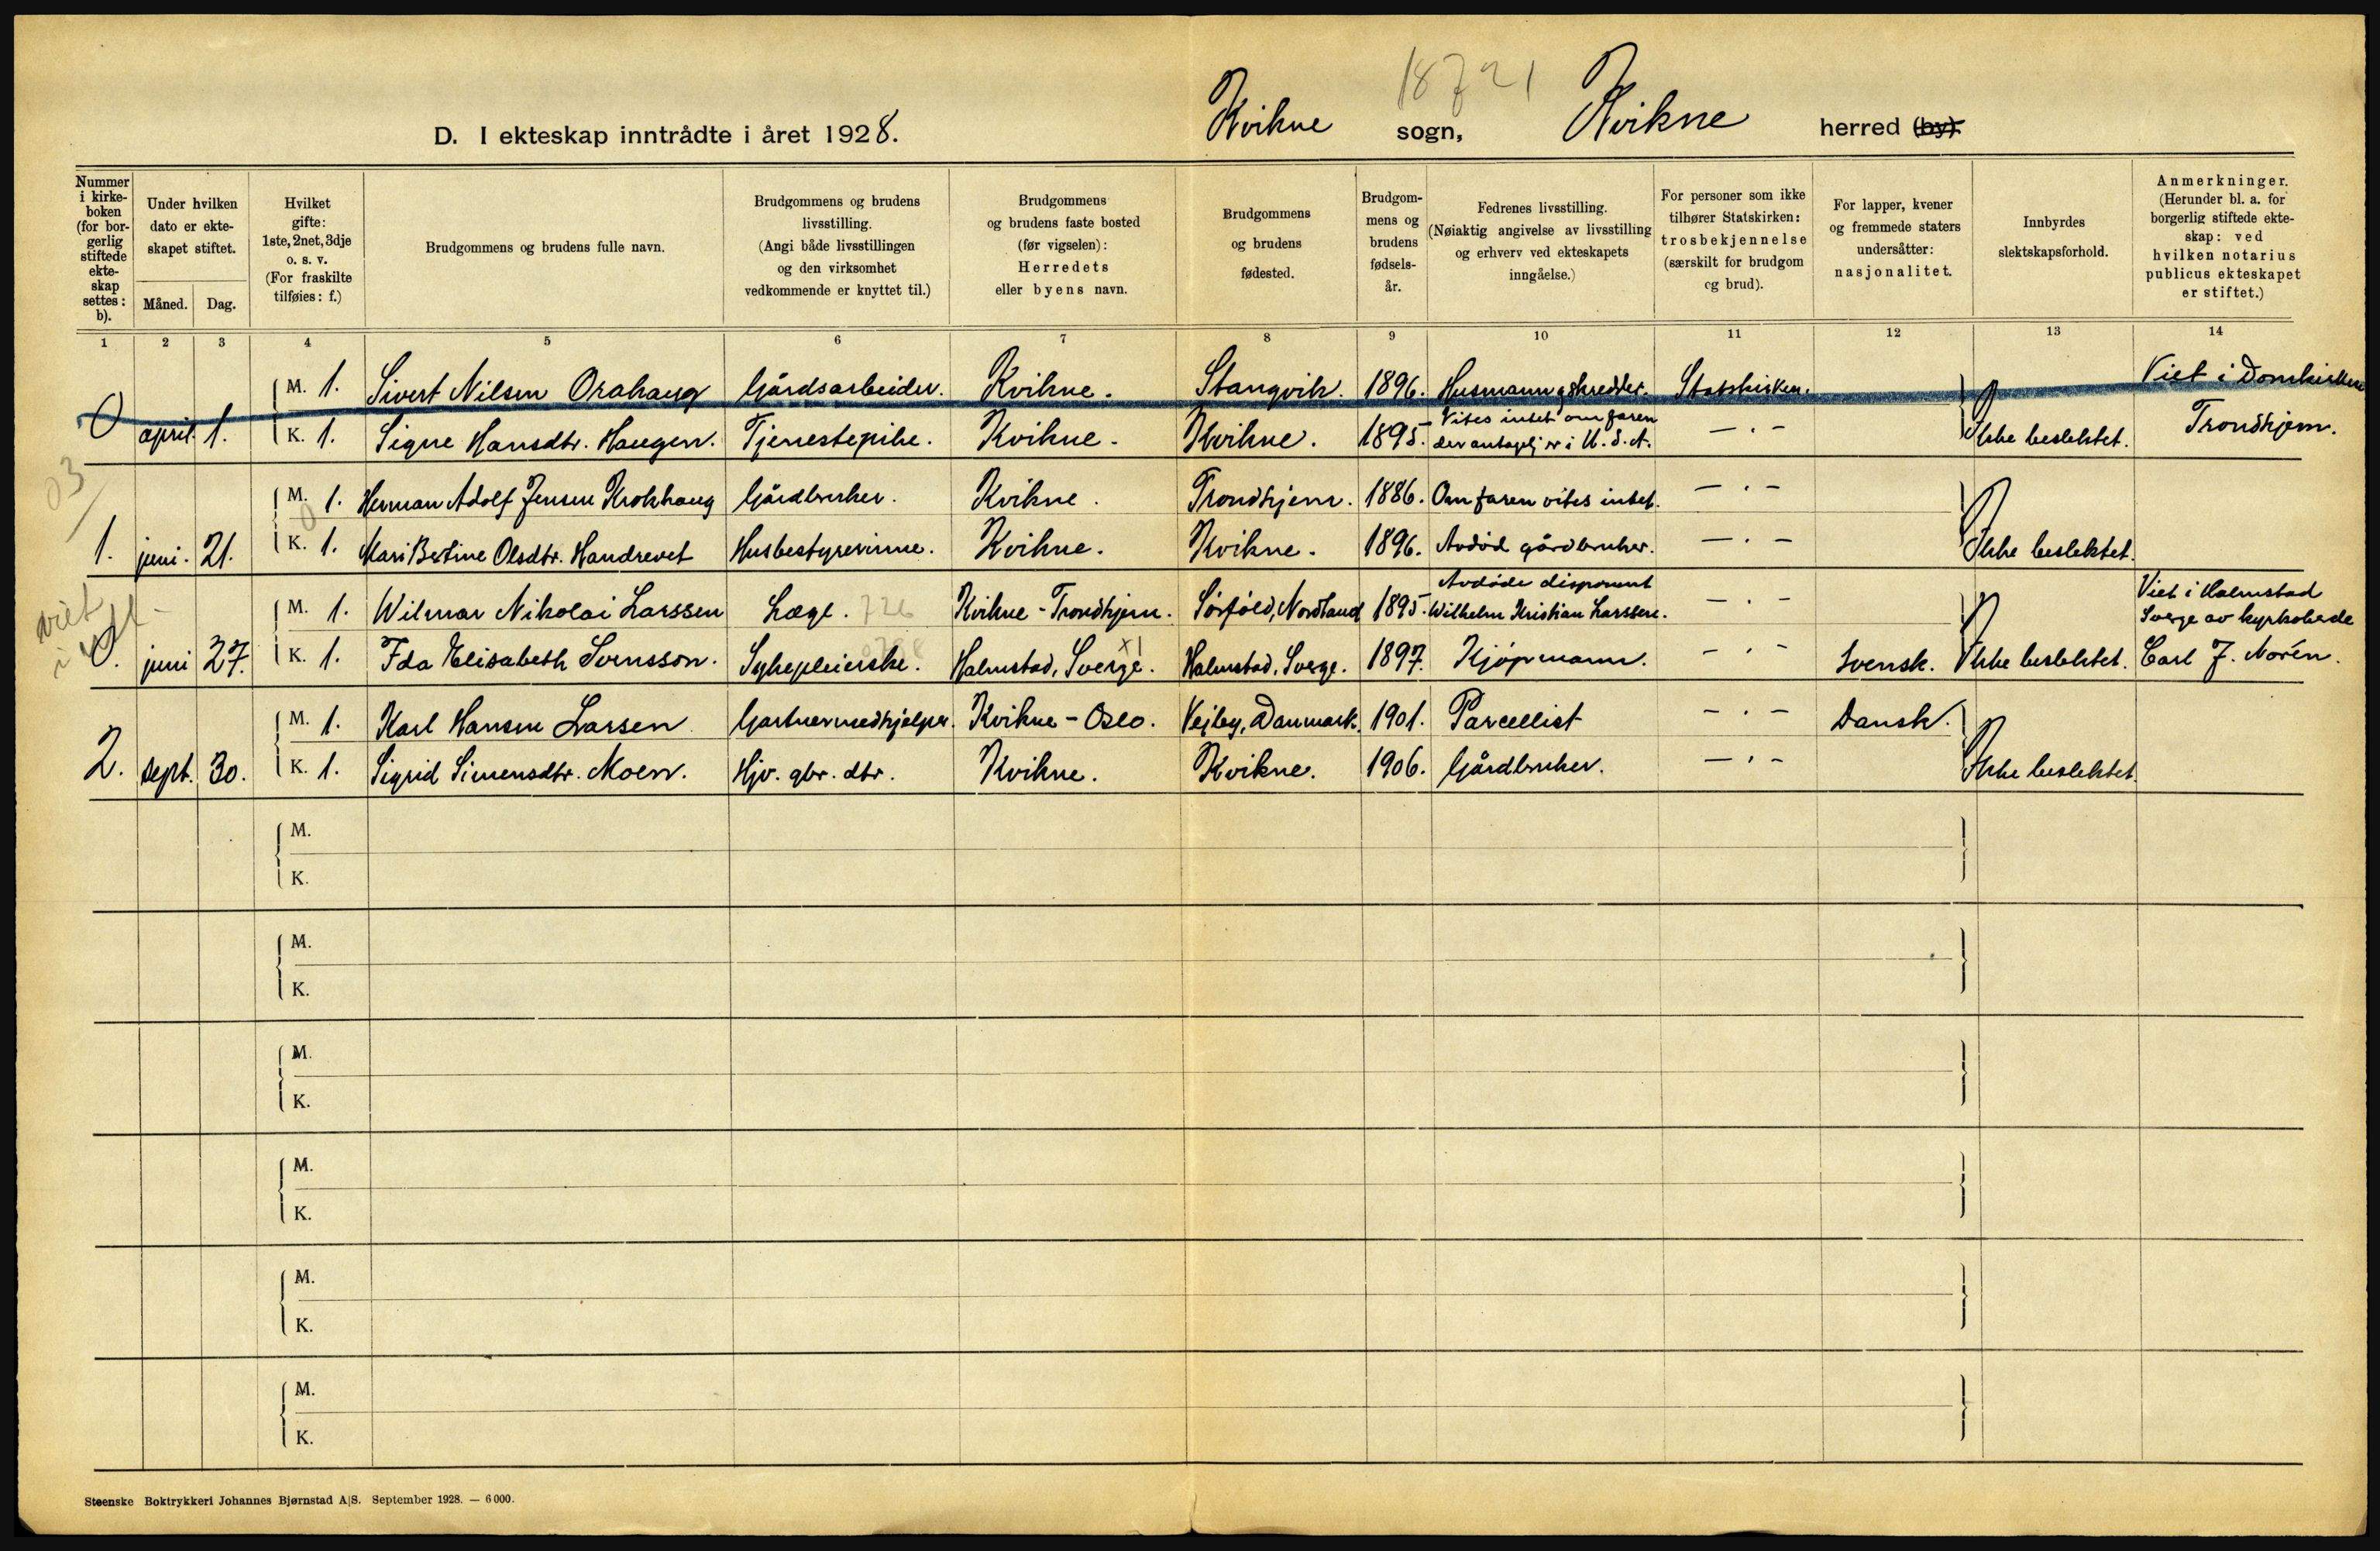 18721
D. I ekteskap inntrådte i året 1928. Kvikne sogn, Kvikne herred (by).
Nummer i kirke-boken (for bor-gerlig stiftede ekte-skap settes: b).
Under hvilken dato er ekte-skapet stiftet.
Måned. Dag.
Hvilket gifte: 1ste, 2net, 3dje o. s. v. (For fraskilte tilføies: f.)
Brudgommens og brudens fulle navn.
Brudgommens og brudens livsstilling. (Angi både livsstillingen og den virksomhet vedkommende er knyttet til.)
Brudgommens og brudens faste bosted (før vigselen): Herredets eller byens navn.
Brudgommens og brudens fødested.
Brudgom-mens og brudens fødsels-år.
Fedrenes livsstilling. (Nøiaktig angivelse av livsstilling og erhverv ved ekteskapets inngåelse.)
For personer som ikke tilhører Statskirken: trosbekjennelse (særskilt for brudgom og brud).
For lapper, kvener og fremmede staters undersåtter: nasjonalitet.
Innbyrdes slektskapsforhold.
Anmerkninger. (Herunder bl. a. for borgerlig stiftede ekte-skap: ved hvilken notarius publicus ekteskapet er stiftet.)
1 2 3 4 5 6 7 8 9 10 11 12 13 14
M. 1. Sivert Nilsen Orahaug Gårdsarbeider. Kvikne. Stangvik. 1896. Husmann g skredder. Statskirken. Viet i Domkirken
0 april. 1. K. 1. Signe Hansdtr. Haugen. Tjenestepike. Kvikne. Kvikne. 1895. Vites intet om faren der antagelj er i U.S.A. — . — Ikke beslektet. Trondhjem.
03
M. 1. Herman Adolf Jensen Krokhaug Gårdbruker. Kvikne. Trondhjem. 1886. Om faren vites intet. — . —
1. juni. 21. K. 1. Mari Bertine Olsdtr. Handrevet Husbestyrerinne. Kvikne. Kvikne. 1896. Avdød gårdbruker. — . — Ikke beslektet.
viet i utl.
M. 1. Wilmar Nikolai Larssen Læge. 726 Kvikne - Trondhjem. Sørfold, Nordland 1895. Avdøde disponent Wilhelm Kristian Larssen. — . — Viet i Halmstad Sverge av kyrkoherde
0. juni 27. K. 1. Ida Elisabeth Svensson. Sykepleierske. Halmstad, Sverge. X1 Halmstad, Sverge. 1897. Kjøpmann. — . — Svensk. Ikke beslektet. Carl J. Norén.
M. 1. Karl Hansen Larsen Gartnermedhjelper. Kvikne - Oslo. Vejby, Danmark. 1901. Parcellist — . — Dansk.
2. sept. 30. K. 1. Sigrid Simensdtr. Moen. Hjv. gbr. dtr. Kvikne. Kvikne. 1906. Gårdbruker. — . — Ikke beslektet.
M.
K.
M.
K.
M.
K.
M.
K.
M.
K.
M.
K.
Steenske Boktrykkeri Johannes Bjørnstad A|S. September 1928. — 6 000.